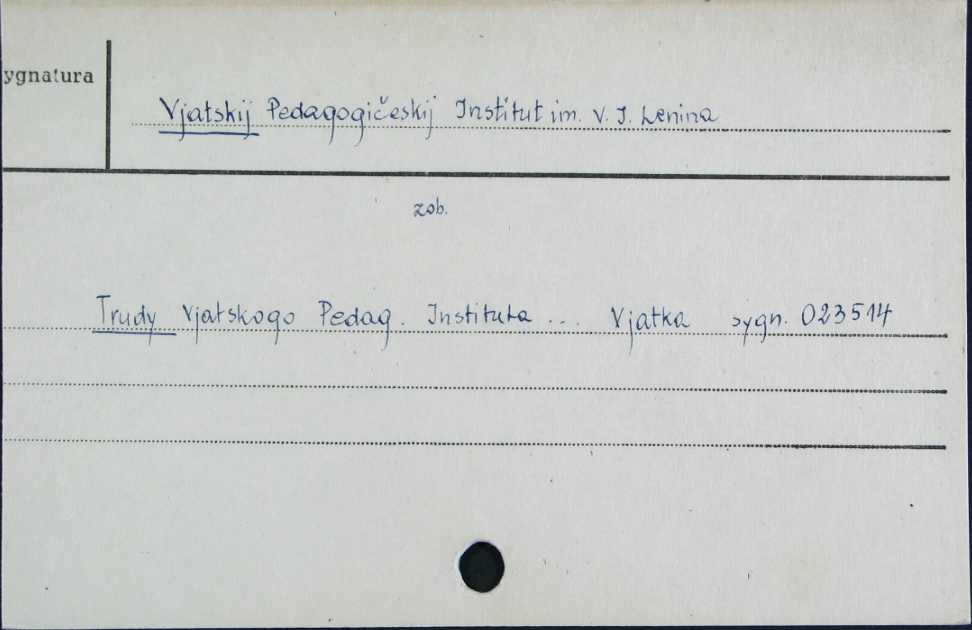 ygnatura
Vjatskij Pedagogičeskij Institut im. V. I. Lenina
zob.
Trudy Vjatskogo Pedag. Instituta ... Vjatka sygn. 023514